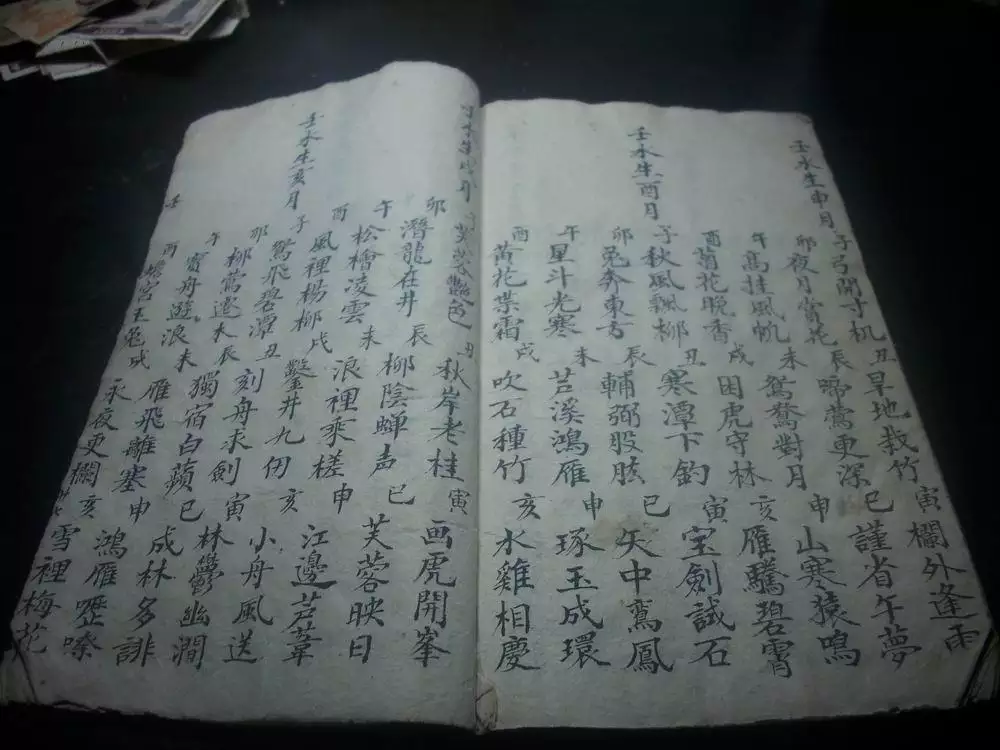 壬水生申月
子弓開寸机 丑旱地栽竹 寅欄外逢雨
卯夜月賞花 辰啼鶯更深 巳謹省午夢
午高挂風帆 未鴛鴦對月 申山寒猿鳴
酉菊花晚香 戌困虎守林 亥雁騰碧霄
壬水生酉月
子秋風飄柳 丑寒潭下釣 寅宝劍試石
卯兔奔東方 辰輔弼股肱 巳矢中鸞鳳
午星斗光寒 未芦溪鴻雁 申琢玉成環
酉黃花葉霜 戌吹石種竹 亥水雞相慶
壬水生戌月
芙蓉豔色 丑秋岸老桂 寅画虎開峯
卯潛龍在井 辰柳陰蝉声 巳芙蓉映日
午松檜凌雲 未浪裡乘槎 申江邊芦葦
酉風裡楊柳 戌鑿井九仞 亥小舟風送
壬水生亥月
子鴛飛碧潭 丑刻舟求劍 寅林鬱幽澗
卯柳鶯遷木 辰獨宿白蘋 巳成林多誹
午寶舟遊浪 未雁飛離塞 申鴻雁嚦嗦
酉蟾宮玉兔 戌永夜更欄 亥雪裡梅花
壬